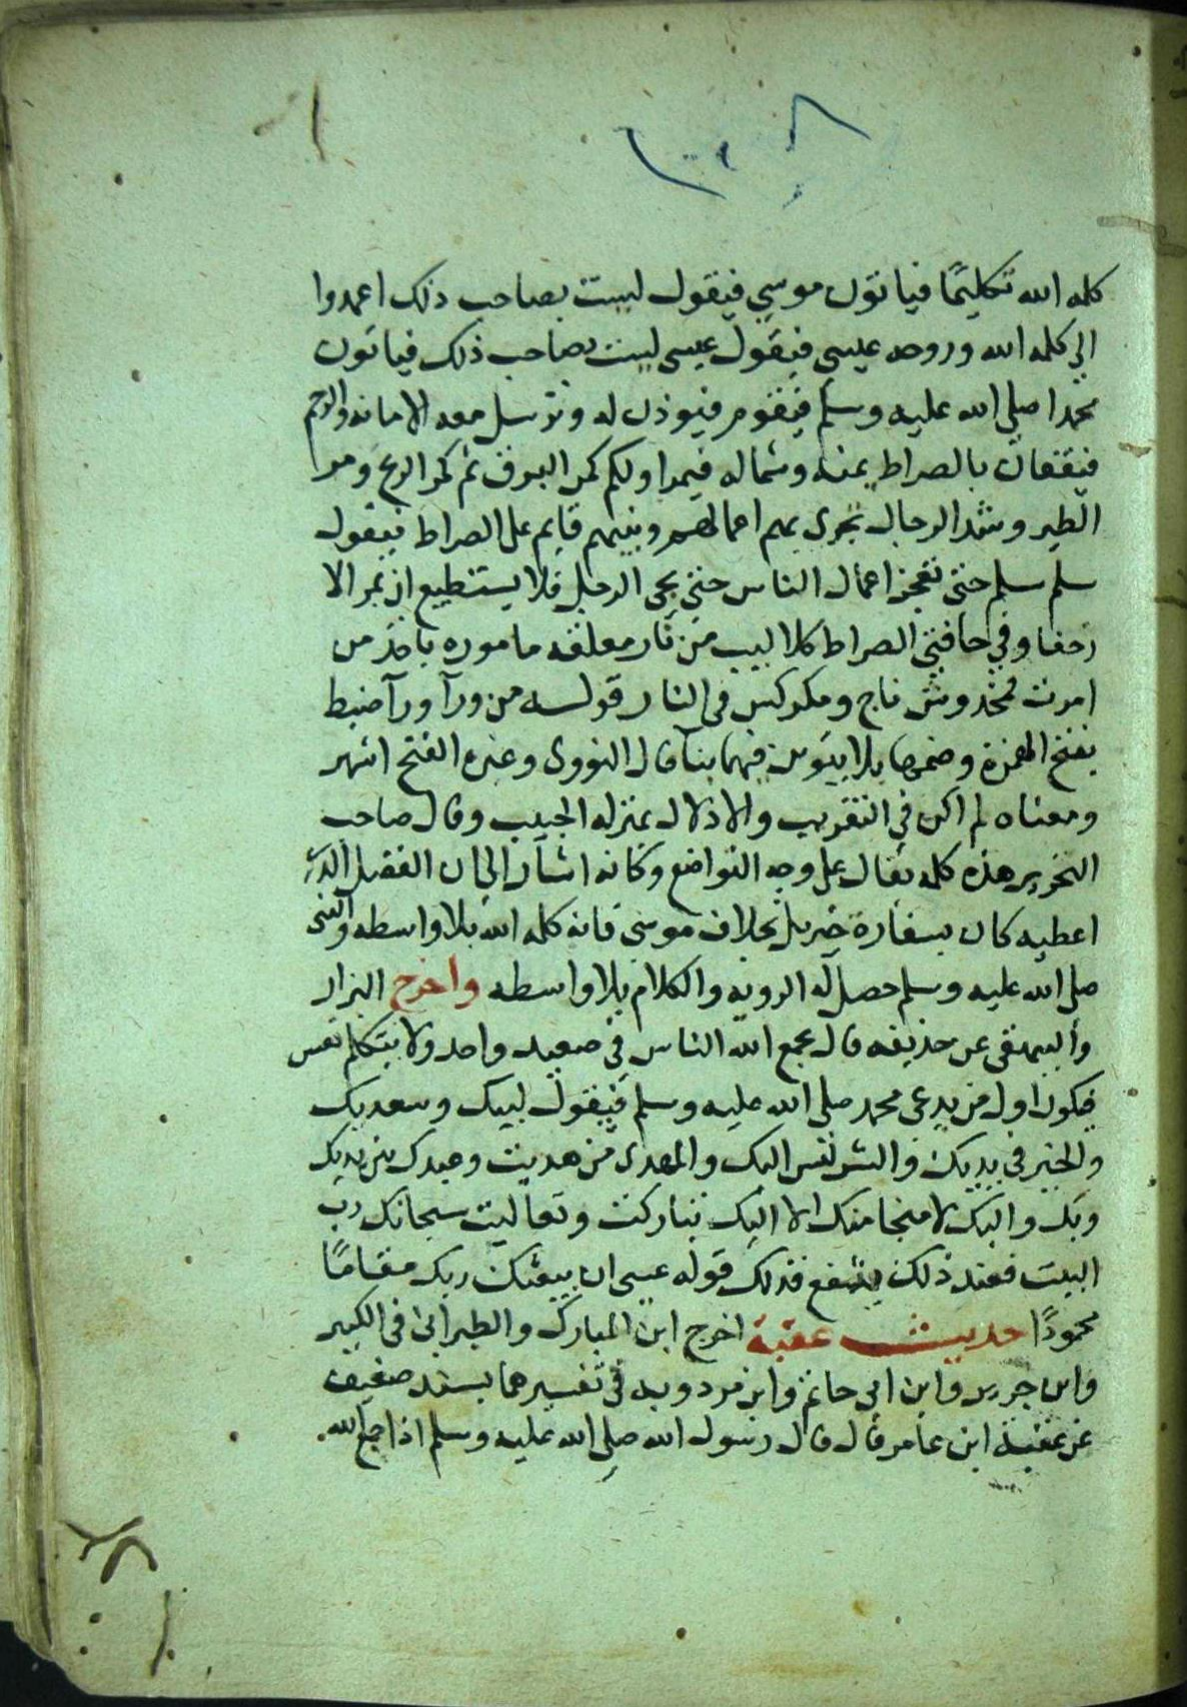 كلمه الله تكليمًا فياتون موسي فيقول ليست بصاحب ذلك اعمدوا
الي كلمه الله وروحه عيسي فيقول عيسي ليست بصاحب ذلك فياتون
محمدا صلي الله عليه وسلم فيقوم فيوذن له وترسل معه الامانه والرحم
فيقفان بالصراط يمنه وشماله فيمر اولكم كمر البرق ثم كمر الريح ومر
الطير وشد الرجال تجرى بهم اعمالهم ونبيهم قايم على الصراط فيقول
سلم سلم حتى تعجز اعمال الناس حتى يجى الرجل فلا يستطيع ان يمر الا
زحفا وفي حافتي الصراط كلاليب من نار معلقه ماموره ياخذ من
امرت فمخدوش ناج ومكركس فى النار قوله من ورآ ورآ ضبط
بفتح الهمزة وضمها بلا تنوين فيهما بنآ قال النووى وغيره الفتح اشهر
ومعناه لم اكن في التقريب والاذلال بمنزله الحبيب وقال صاحب
التحرير هذه كلمه تقال على وجه التواضع وكانه اشار الى ان الفضل الذى
اعطيه كان بسفارة جبريل بخلاف موسى فانه كلمه الله بلا واسطه والنبى
صلى الله عليه وسلم حصل له الرويه والكلام بلا واسطه واخرج البزار
والبيهقى عن حذيفه قال يجمع الله الناس في صعيد واحد ولا يتكلم نفس
فيكون اول من يدعى محمد صلى الله عليه وسلم فيقول لبيك وسعديك
والخير فى يديك والشر ليس اليك والمهدى من هديت وعبدك بين يديك
وبك واليك لا منجا منك الا اليك تباركت وتعاليت سبحانك رب
البيت فعند ذلك يشفع فذلك قوله عسى ان يبعثك ربك مقامًا
محمودًا حديث عقبة اخرج ابن المبارك والطبرانى فى الكبير
وابن جرير وابن ابى حاتم وابن مردويه فى تفسيرهما بسند ضعيف
عن عقبة ابن عامر قال قال رسول الله صلى الله عليه وسلم اذا جمع الله